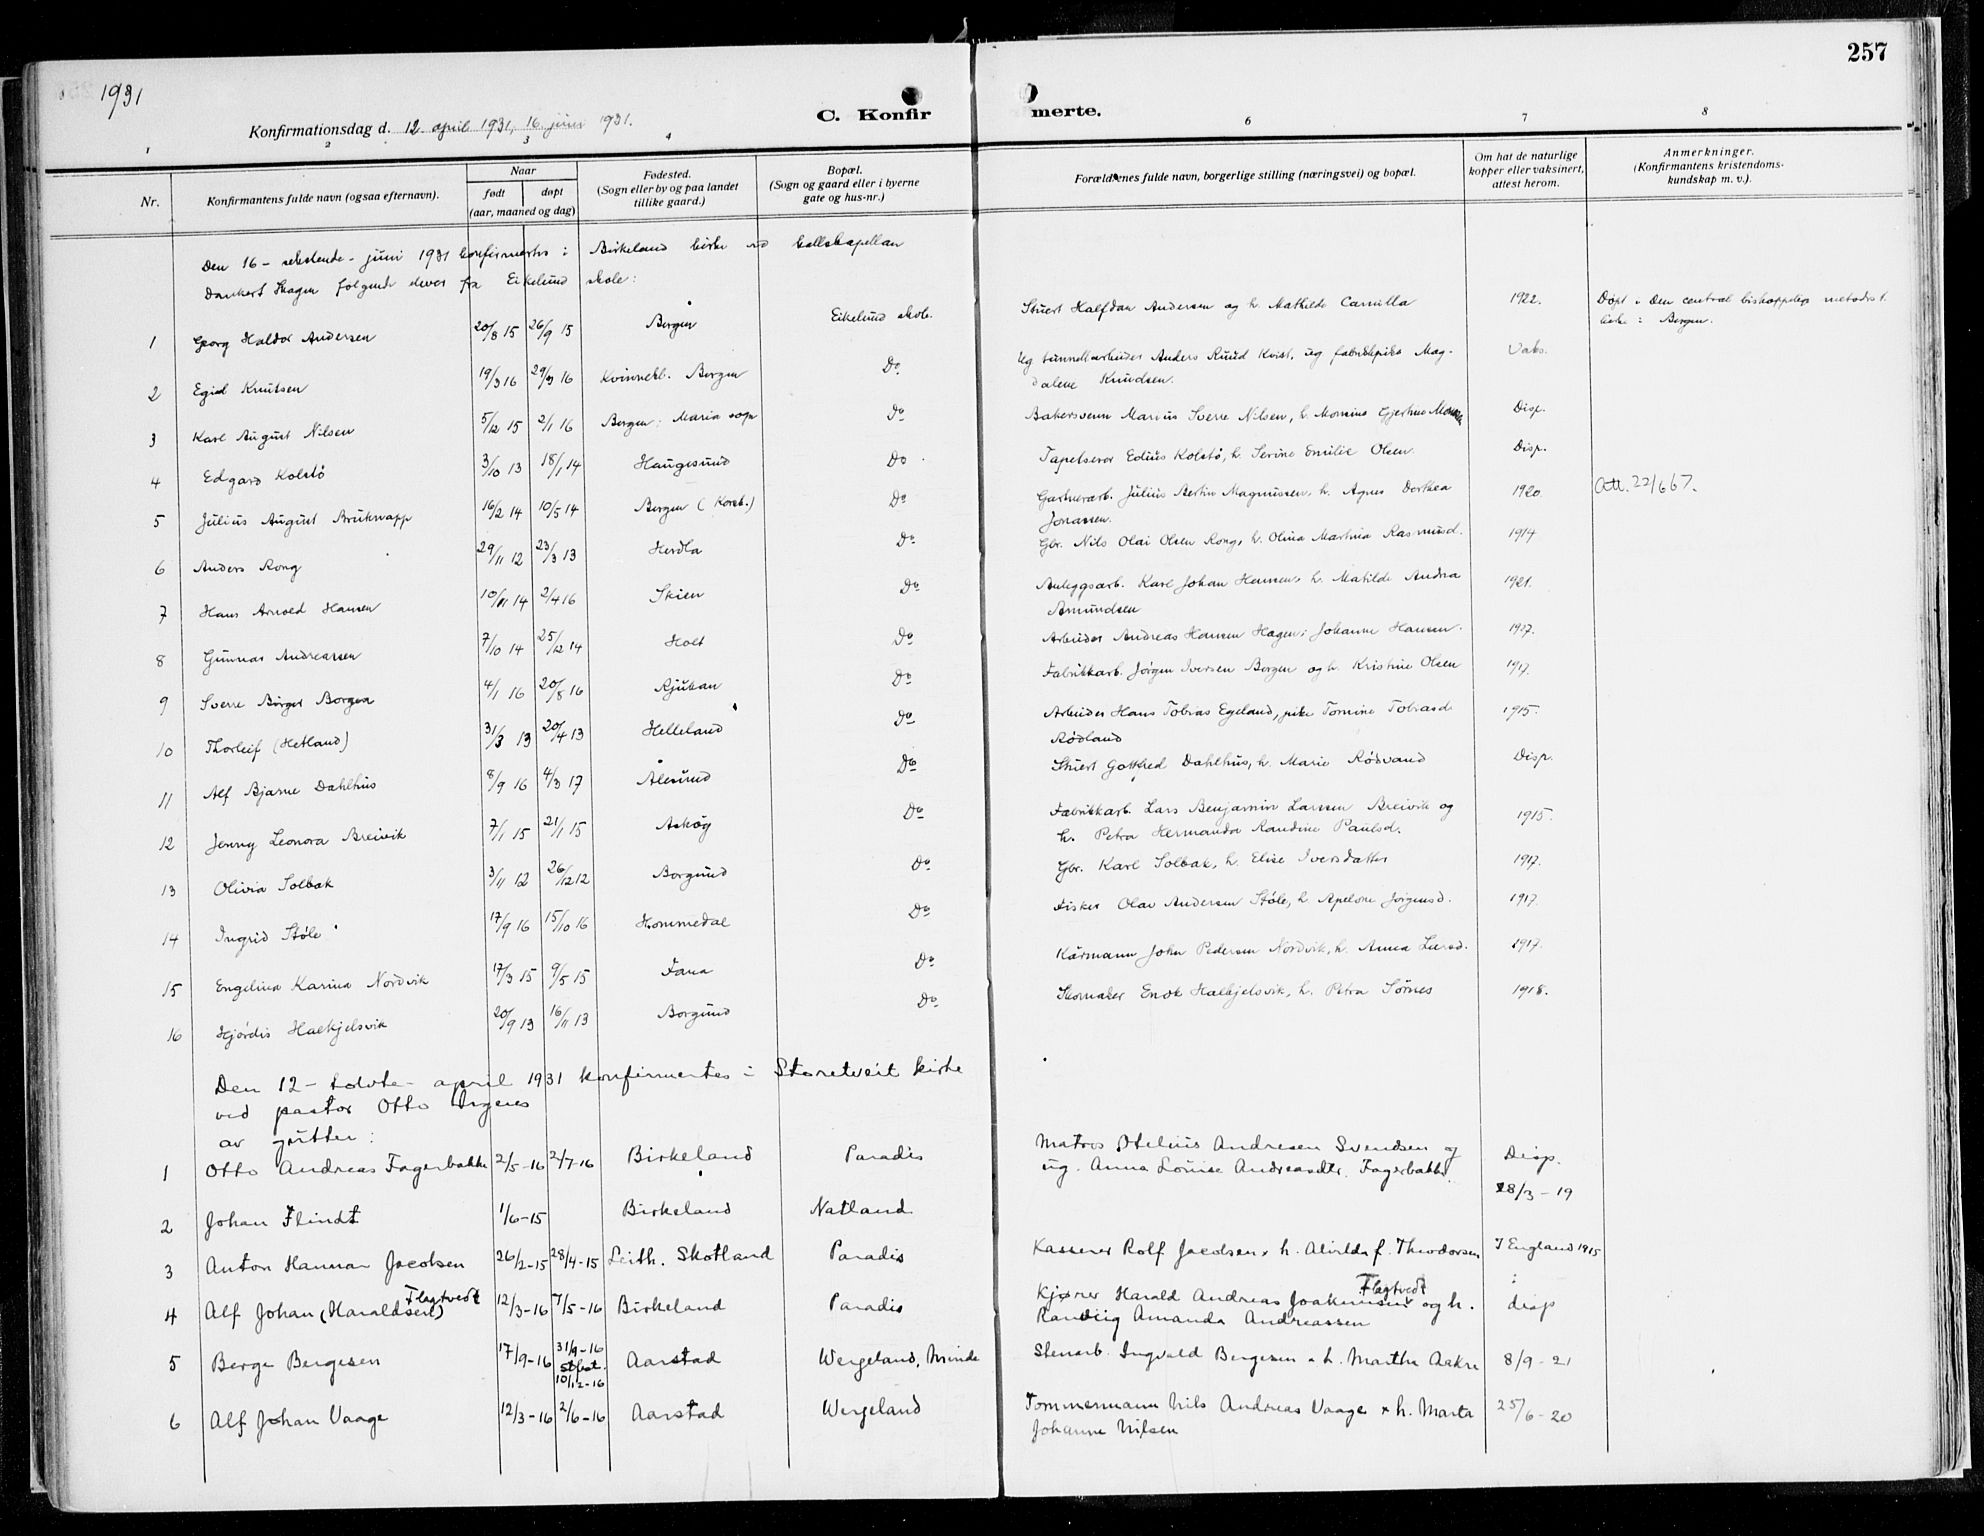 257
1931
Konfirmationsdag d. 12. april 1931, 16. juni 1931.
C. Konfirmerte.
1 2 3 4 6 7 8
Nr.
Konfirmantens fulde navn (ogsaa efternavn).
Naar
født døpt
(aar, maaned og dag)
Fødested.
(Sogn eller by og paa landet
tillike gaard.)
Bopæl.
(Sogn og gaard eller i byerne
gate og hus-nr.)
Forældrenes fulde navn, borgerlige stilling (næringsvei) og bopæl.
Om hat de naturlige
kopper eller vaksinert,
attest herom.
Anmerkninger.
(Konfirmantens kristendoms-
kundskap m. v.).
Den 16 - sekstende - juni 1931 konfirmertes i Birkeland kirke ved kallskapellan
Dankert Skagen følgende elever fra Eikelund skole:
1 Georg Haldor Andersen 20/8 15 26/9 15 Bergen Eikelund skole. Stuert Halfdan Andersen og h. Mathilde Camilla 1922. Døpt i Den central biskoppelige metodist.
kirke i Bergen.
2 Egid Knutsen 19/3 16 29/3 16 Kvinnekl. Bergen Do Ug tunnelarbeider Anders Ruud Kvist, ug fabrikkpike Mag-
dalene Knudsen. Vaks.
3 Karl August Nilsen 5/12 15 2/1 16 Bergen: Maria sogn Do Bakersvenn Marius Sverre Nilsen, h. Monsine Gjertine Disp.
4 Edgard Kolstø 3/10 13 18/1 14 Haugesund Do Tapetserer Edius Kolstø, h. Serine Emilie Olsen. Disp.
5 Julius August Bruknapp 16/2 14 10/5 14 Bergen (Korsk.) Do Gartnerarb. Julius Bertin Magnussen, h. Agnes Dorthea
Jonassen. 1920. Att. 22/6 67.
6 Anders Rong 29/11 12 23/3 13 Herdla Do Gbr. Nils Olai Olsen Rong, h. Olina Martina Rasmusd. 1914
7 Hans Arnold Hansen 10/11 14 2/4 16 Skien Do Anleggsarb. Karl Johan Hansen, h. Matilde Andrea
Amundsen 1921.
8 Gunnar Andreassen 7/10 14 25/12 14 Holt Do Arbeider Andreas Hansen Hagen; Johanne Hansen. 1927.
9 Sverre Birger Borgen 4/1 16 20/8 16 Rjukan Do Fabrikkarb. Jørgen Iversen Borgen og h. Kristine Olsen 1917.
10 Thorleif (Hetland) 31/3 13 20/4 13 Helleland Do Arbeider Hans Tobias Egeland, pike Tomine Tobiasd.
Rødland 1915.
11 Alf Bjarne Dahlhus 8/9 16 4/3 17 Ålesund Do Stuert Gotthed Dahlhus, h. Marie Rødsvand Disp.
12 Jenny Leonora Breivik 7/1 15 21/1 15 Askøy Do Fabrikkarb. Lars Benjamin Larsen Breivik og
h. Petra Hermanda Randine Paulsd. 1915.
13 Olivia Solbak 3/11 12 26/12 12 Borgund Do Gbr. Karl Solbak, h. Elise Iversdatter 1917.
14 Ingrid Støle 17/9 16 15/10 16 Hommedal Do Fisker Olav Andersen Støle, h Apelone Jørgensd. 1917.
15 Engelina Karina Nordvik 17/3 15 9/5 15 Fana Do Kårmann John Pedersen Nordvik, h. Anna Larsd. 1917.
16 Hjørdis Halkjelsvik 20/9 13 16/11 13 Borgund Do Skomaker Enok Halkjelsvik, h. Petra Sørnes 1918.
Den 12 - tolvte - april 1931 konfirmertes i Storetveit kirke
ved pastor Otto Irgens
av gutter:
1 Otto Andreas Fagerbakke 2/5-16 2/7-16 Birkeland Paradis Matros Otelius Andresen Svendsen og
ug. Anna Louise Andreasdtr. Fagerbakke. Disp.
2 Johan Flindt 1/6-15 Birkeland Natland 28/3-19
3 Anton Hannan Jacobsen 26/2-15 28/4-15 Leith. Skotland Paradis Kasserer Rolf Jacobsen x h. Alvilda f. Theodorsen I England 1915
4 Alf Johan (Haraldsen) Flagtvedt 12/3-16 7/5-16 Birkeland Paradis Kjører Harald Andreas Joakimsen Flagtvedt og h.
Randiig Amanda Andreassen disp
5 Berge Bergesen 17/9-16 31/9-16
stfest.
10/12-16 Aarstad Wergeland, Minde Stenarb. Ingvald Bergesen x h. Martha Aakre 8/9-21
6 Alf Johan Vaage 12/3-16 2/6-16 Aarstad Wergeland Tømmermann Nils Andreas Vaage x h. Marta
Johanne Nilsen 25/6-20